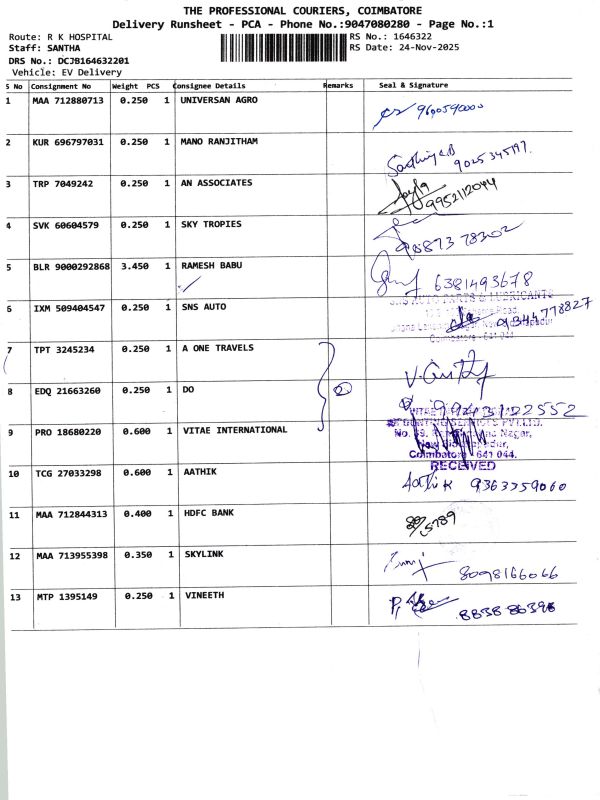 THE PROFESSIONAL COURIERS, COIMBATORE
Delivery Runsheet - PCA - Phone No.:9047080280 - Page No.:1
Route: R K HOSPITAL
RS No.: 1646322
Staff: SANTHA
RS Date: 24-Nov-2025
DRS No.: DCJB164632201
Vehicle: EV Delivery
S No Consignment No Weight PCS Consignee Details Remarks Seal & Signature
1 MAA 712880713 0.250 1 UNIVERSAN AGRO
2 KUR 696797031 0.250 1 MANO RANJITHAM
3 TRP 7049242 0.250 1 AN ASSOCIATES 9952112044
4 SVK 60604579 0.250 1 SKY TROPIES
5 BLR 9000292868 3.450 1 RAMESH BABU 6381493678
6 IXM 509404547 0.250 1 SNS AUTO 9344778827
SNS AUTO PARTS & LUBRICANTS
Coimbatore - 641 044
7 TPT 3245234 0.250 1 A ONE TRAVELS
8 EDQ 21663260 0.250 1 DO
9943122552
9 PRO 18680220 0.600 1 VITAE INTERNATIONAL
Coimbatore - 641 044.
RECEIVED
10 TCG 27033298 0.600 1 AATHIK Aathik 9363359060
11 MAA 712844313 0.400 1 HDFC BANK 5789
12 MAA 713955398 0.350 1 SKYLINK 8098166066
13 MTP 1395149 0.250 1 VINEETH